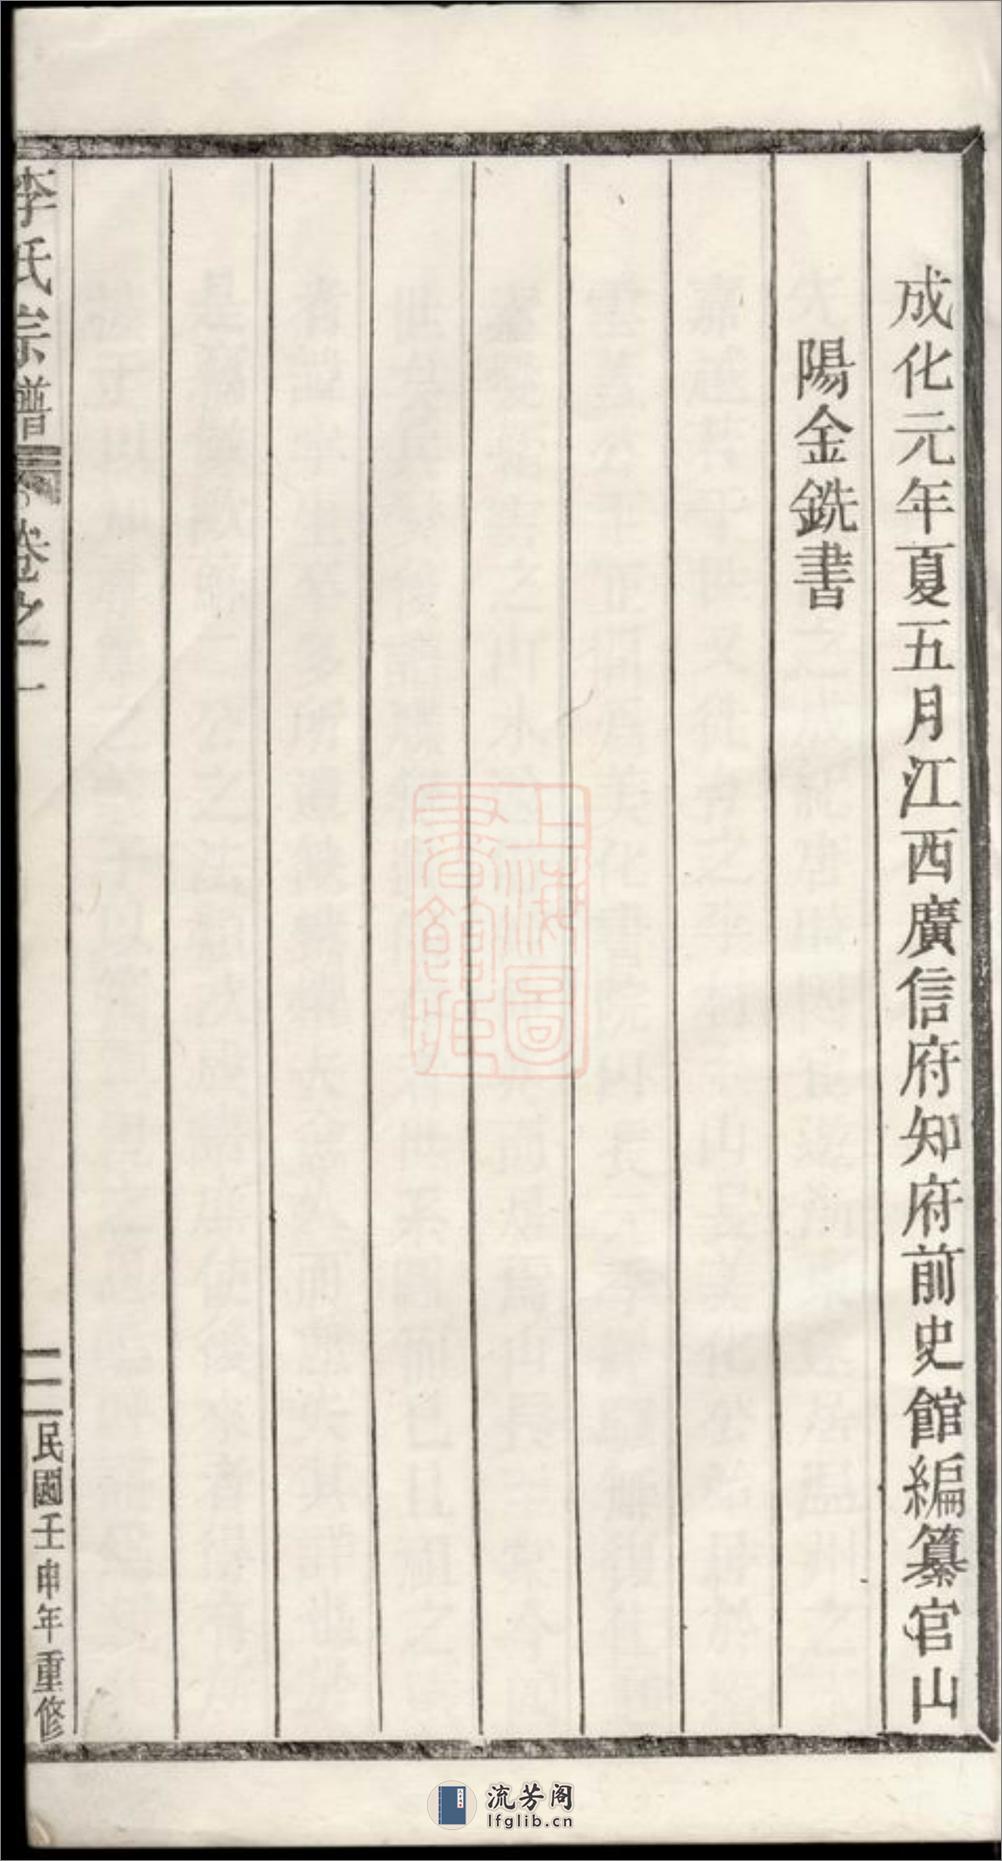 成化元年夏五月江西廣信府知府前史館編纂官山
陽金銑書
李氏宗譜
卷之一
二
民國壬申年重修
上海圖
書館藏
流芳阁
lfglib.cn